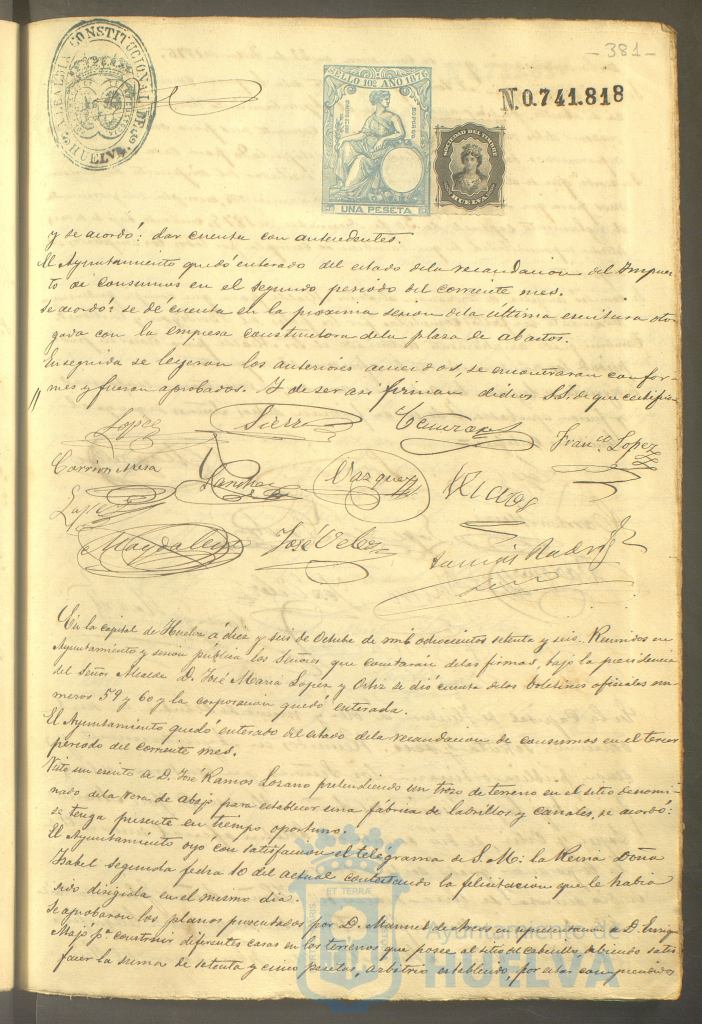 - 381 -
ALCALDIA CONSTITUCIONAL DE HUELVA.
SELLO 10º AÑO 187
UNA PESETA
SOCIEDAD DEL TIMBRE
HUELVA
N.0.741.818
y se acordó: dar cuenta con antecedentes.
El Ayuntamiento quedó enterado del estado dela recaudacion del Impues-
to de Consumos en el segundo periodo del corriente mes.
Se acordó: se dé cuenta en la proxima sesion dela última escritura otor-
gada con la empresa constructora dela plaza de abastos.
En seguida se leyeron los anteriores acuerdos, se encontraron confor-
mes y fueron aprobados. Y de ser asi firman dichos S.S. de que certifico
Lopez Sierra Franco Lopez
Carrion Mesa Sanchez Vazquez
Lopez
Magdalena José Velez
En la capital de Huelva á diez y seis de Octubre de mil ochocientos setenta y seis. Reunidos en
Ayuntamiento y sesion pública los Señores que constarán delas firmas, bajo la presidencia
del Señor Alcalde D. José Maria Lopez y Ortiz se dió cuenta delos boletines oficiales nu-
meros 59 y 60 y la corporacion quedó enterada.
El Ayuntamiento quedó enterado del estado dela recaudacion de consumos en el tercer
periodo del corriente mes.
Visto un escrito de D. José Ramos Lozano pretendiendo un trozo de terreno en el sitio denomi-
nado dela Vera de abajo para establecer una fábrica de ladrillos y canales, se acordó:
se tenga presente en tiempo oportuno.
El Ayuntamiento oyó con satisfaccion el telégrama de S. M. la Reina Doña
Isabel segunda fecha 10 del actual contestando la felicitacion que le habia
sido dirigida en el mismo dia.
Se aprobaron los planos presentados por D. Manuel de en representacion de D. Enrique
pª construir diferentes casas en los terrenos que posee al sitio de debiendo satis-
facer la suma de setenta y cinco pesetas, arbitrio establecido, por estar comprendidos
HUELVA